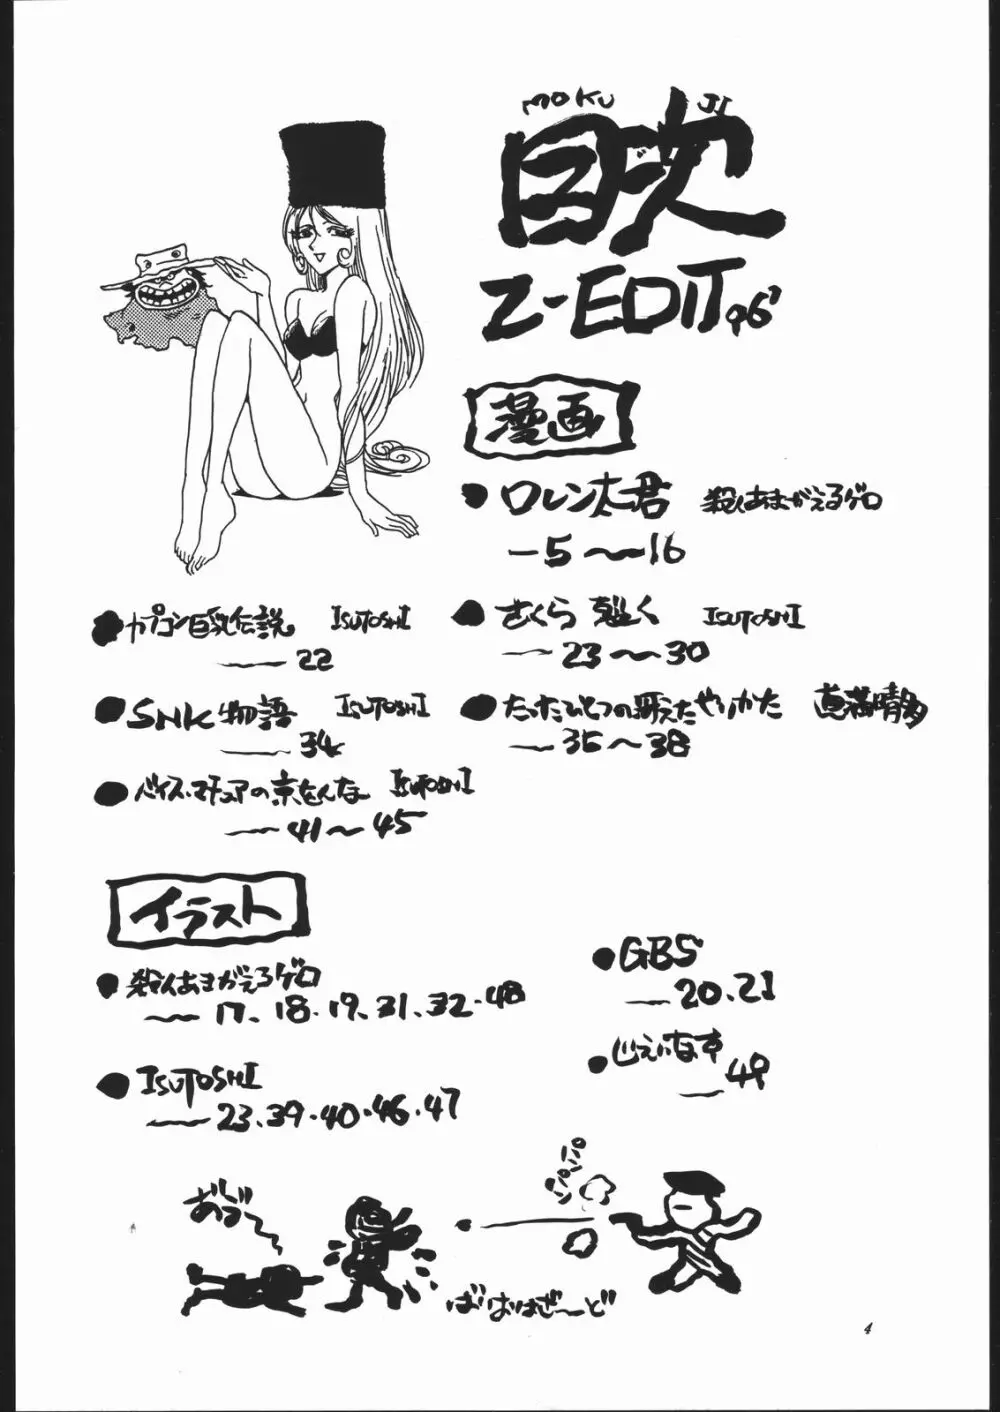 MOKU JI
目次
Z-EDIT 96'
漫画
●ロレン太君 殺人あまがえるゲロ
—5〜16
●カプコン巨乳伝説 ISUTOSHI
—22
●さくら ISUTOSHI
—23〜30
●SNK物語 ISUTOSHI
—34
●たったひとつの冴えたやりかた 真満晴多
—35〜38
●バイス、マチュアの京をんな ISUTOSHI
—41〜45
イラスト
●殺人あまがえるゲロ
—17、18・19、31、32・48
●GBS
—20、21
●ISUTOSHI
—23、39・40・46・47
●じえいなす
—49
パンパン
あづー
ばいおはざーど
4